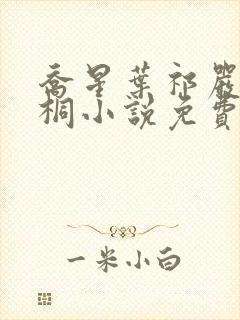 喬星葉祁嚴
桐小說免費
一米小白